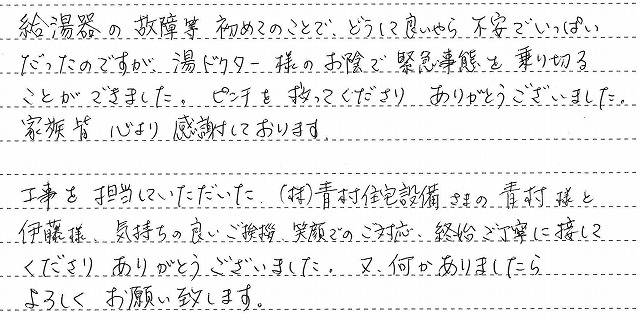 給湯器の故障等 初めてのことで、どうして良いやら 不安でいっぱい
だったのですが、湯ドクター様のお陰で 緊急事態を乗り切る
ことができました。ピンチを救ってくださり ありがとうございました。
家族皆 心より 感謝しております。
工事を担当していただいた (株)青村住宅設備さまの 青村様と
伊藤様、気持ちの良いご挨拶、笑顔でのご対応、終始ご丁寧に接して
くださり ありがとうございました。又、何かありましたら
よろしく お願い致します。